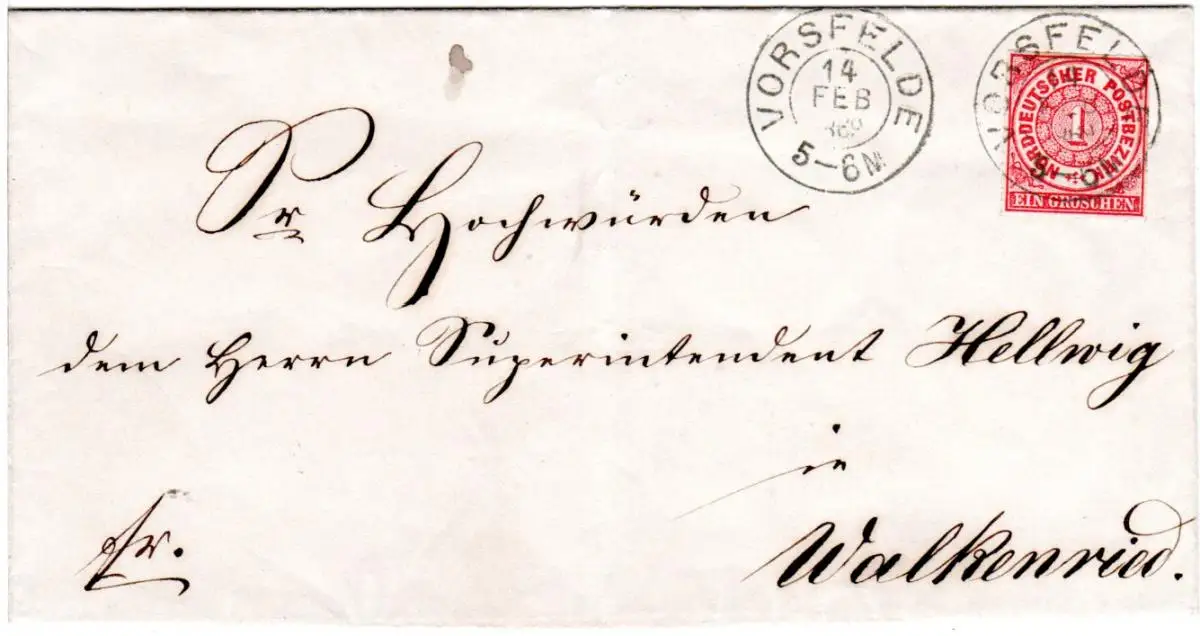 VORSFELDE
14
FEB
5-6 N
VORSFELDE
NORDDEUTSCHER POSTBEZIRK
1
EIN GROSCHEN
Sr Hochwürden
dem Herrn Superintendent Hellwig
in
Walkenried.
fr.